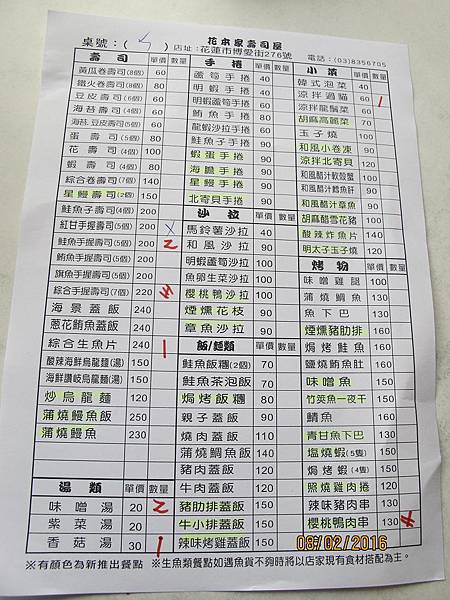 花本家壽司屋
桌號：( 5 ) 店址：花蓮市博愛街276號 電話：(03)8356705
壽司 單價 數量
黃瓜卷壽司(8個) 60
鐵火卷壽司(8個) 80
豆皮壽司(6個) 60
海苔壽司(6個) 60
海苔.豆皮壽司(6個) 60
蛋壽司(5個) 80
花壽司(4個) 90
蝦壽司(4個) 80
綜合卷壽司(7個) 140
星鰻壽司(2個) 150
鮭魚子壽司(4個) 200
紅甘手握壽司(5個) 200 X
鮭魚手握壽司(5個) 200 2
鮪魚手握壽司(5個) 200
旗魚手握壽司(5個) 200
綜合手握壽司(7個) 220
海景蓋飯 240
蔥花鮪魚蓋飯 240
綜合生魚片 240 1
酸辣海鮮烏龍麵(湯) 150
海鮮讚岐烏龍麵(湯) 150
炒烏龍麵 120
蒲燒鰻魚飯 250
蒲燒鰻魚 230
湯類 單價 數量
味噌湯 20 2
紫菜湯 20
香菇湯 30 1
手捲 單價 數量
蘆筍手捲 40
明蝦手捲 40
明蝦蘆筍手捲 60
鮪魚手捲 60
龍蝦沙拉手捲 60
鮭魚子手捲 90
蝦蛋手捲 90
海膽手捲 90
星鰻手捲 90
北寄貝手捲 90
沙拉 單價 數量
馬鈴薯沙拉 40
和風沙拉 90
明蝦蘆筍沙拉 100
魚卵生菜沙拉 100
櫻桃鴨沙拉 100
煙燻花枝 90
章魚沙拉 90
飯/麵類 單價 數量
鮭魚飯糰(2個) 70
鮭魚茶泡飯 70
焗烤飯糰 80
親子蓋飯 90
燒肉蓋飯 110
蒲燒鯛魚飯 140
豬肉蓋飯 90
牛肉蓋飯 90
豬肋排蓋飯 90
牛小排蓋飯 90
辣味烤雞蓋飯 90
小菜 單價 數量
韓式泡菜 40
涼拌過貓 60 1
涼拌龍鬚菜 60
胡麻高麗菜 70
玉子燒 60
和風小卷凍 90
涼拌北寄貝 120
和風醋汁軟殼蟹
和風醋汁鱈魚肝 90
和風醋汁章魚 90
胡麻醋雪花豬 100
酸辣炸魚片 140
明太子玉子燒 120
烤物 單價 數量
味噌雞腿 100
蒲燒鯛魚 90
魚下巴 90
煙燻豬肋排 160
焗烤鮭魚 90
鹽燒鮪魚肚 160
味噌魚 150
竹筴魚一夜干 150
鯖魚 160
青甘魚下巴 130
塩燒蝦(5隻) 150
焗烤蝦(4隻) 150
照燒雞肉捲 120
辣味豬肉串 130
櫻桃鴨肉串 130
08/02/2016
※有顏色為新推出餐點 ※生魚類餐點如遇魚貨不夠時將以店家現有食材搭配為主。